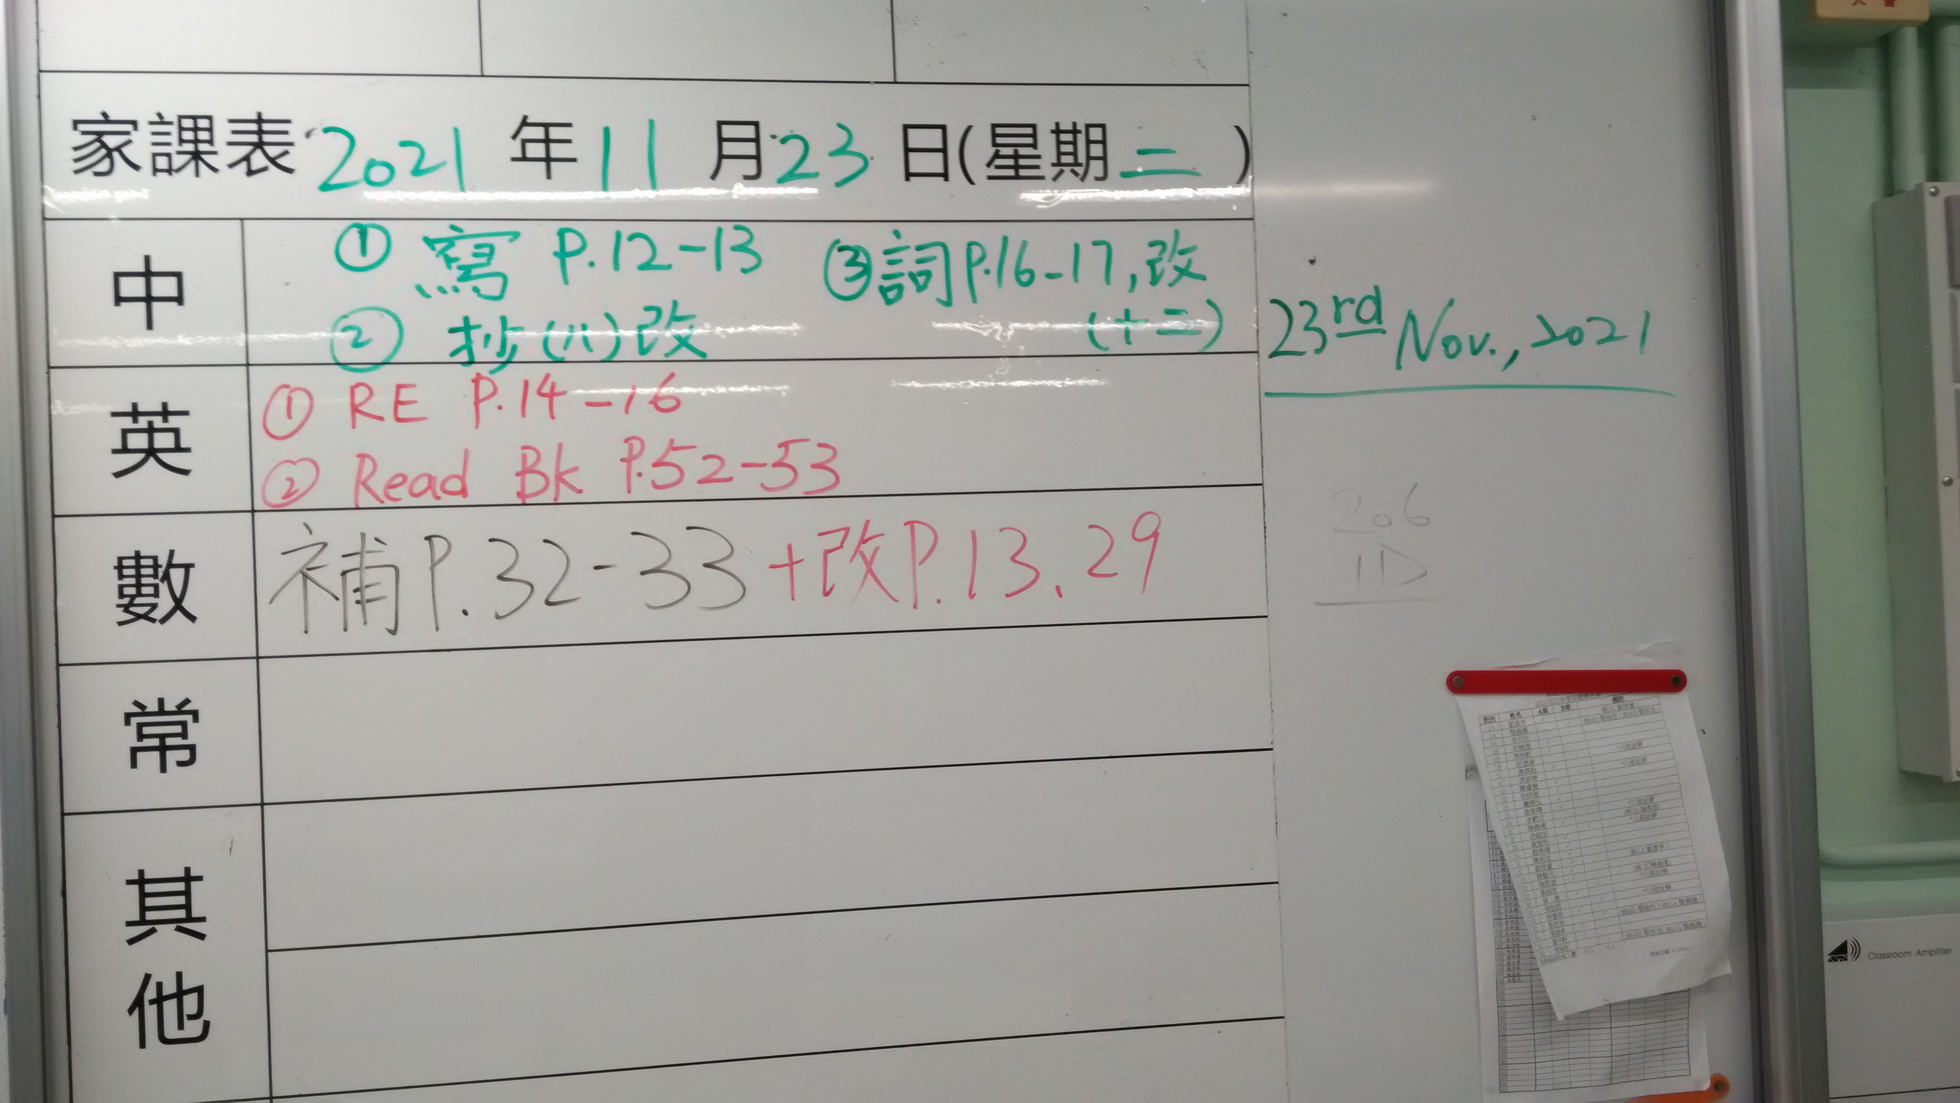 家課表 2021 年 11 月 23 日(星期二)
中
① 寫 P.12-13 ③詞P.16-17,改
② 抄(八)改 (十二)
23rd Nov., 2021
英
① RE P.14-16
② Read Bk P.52-53
206
1D
數
補P.32-33+改P.13、29
常
其他
Classroom Amplifier